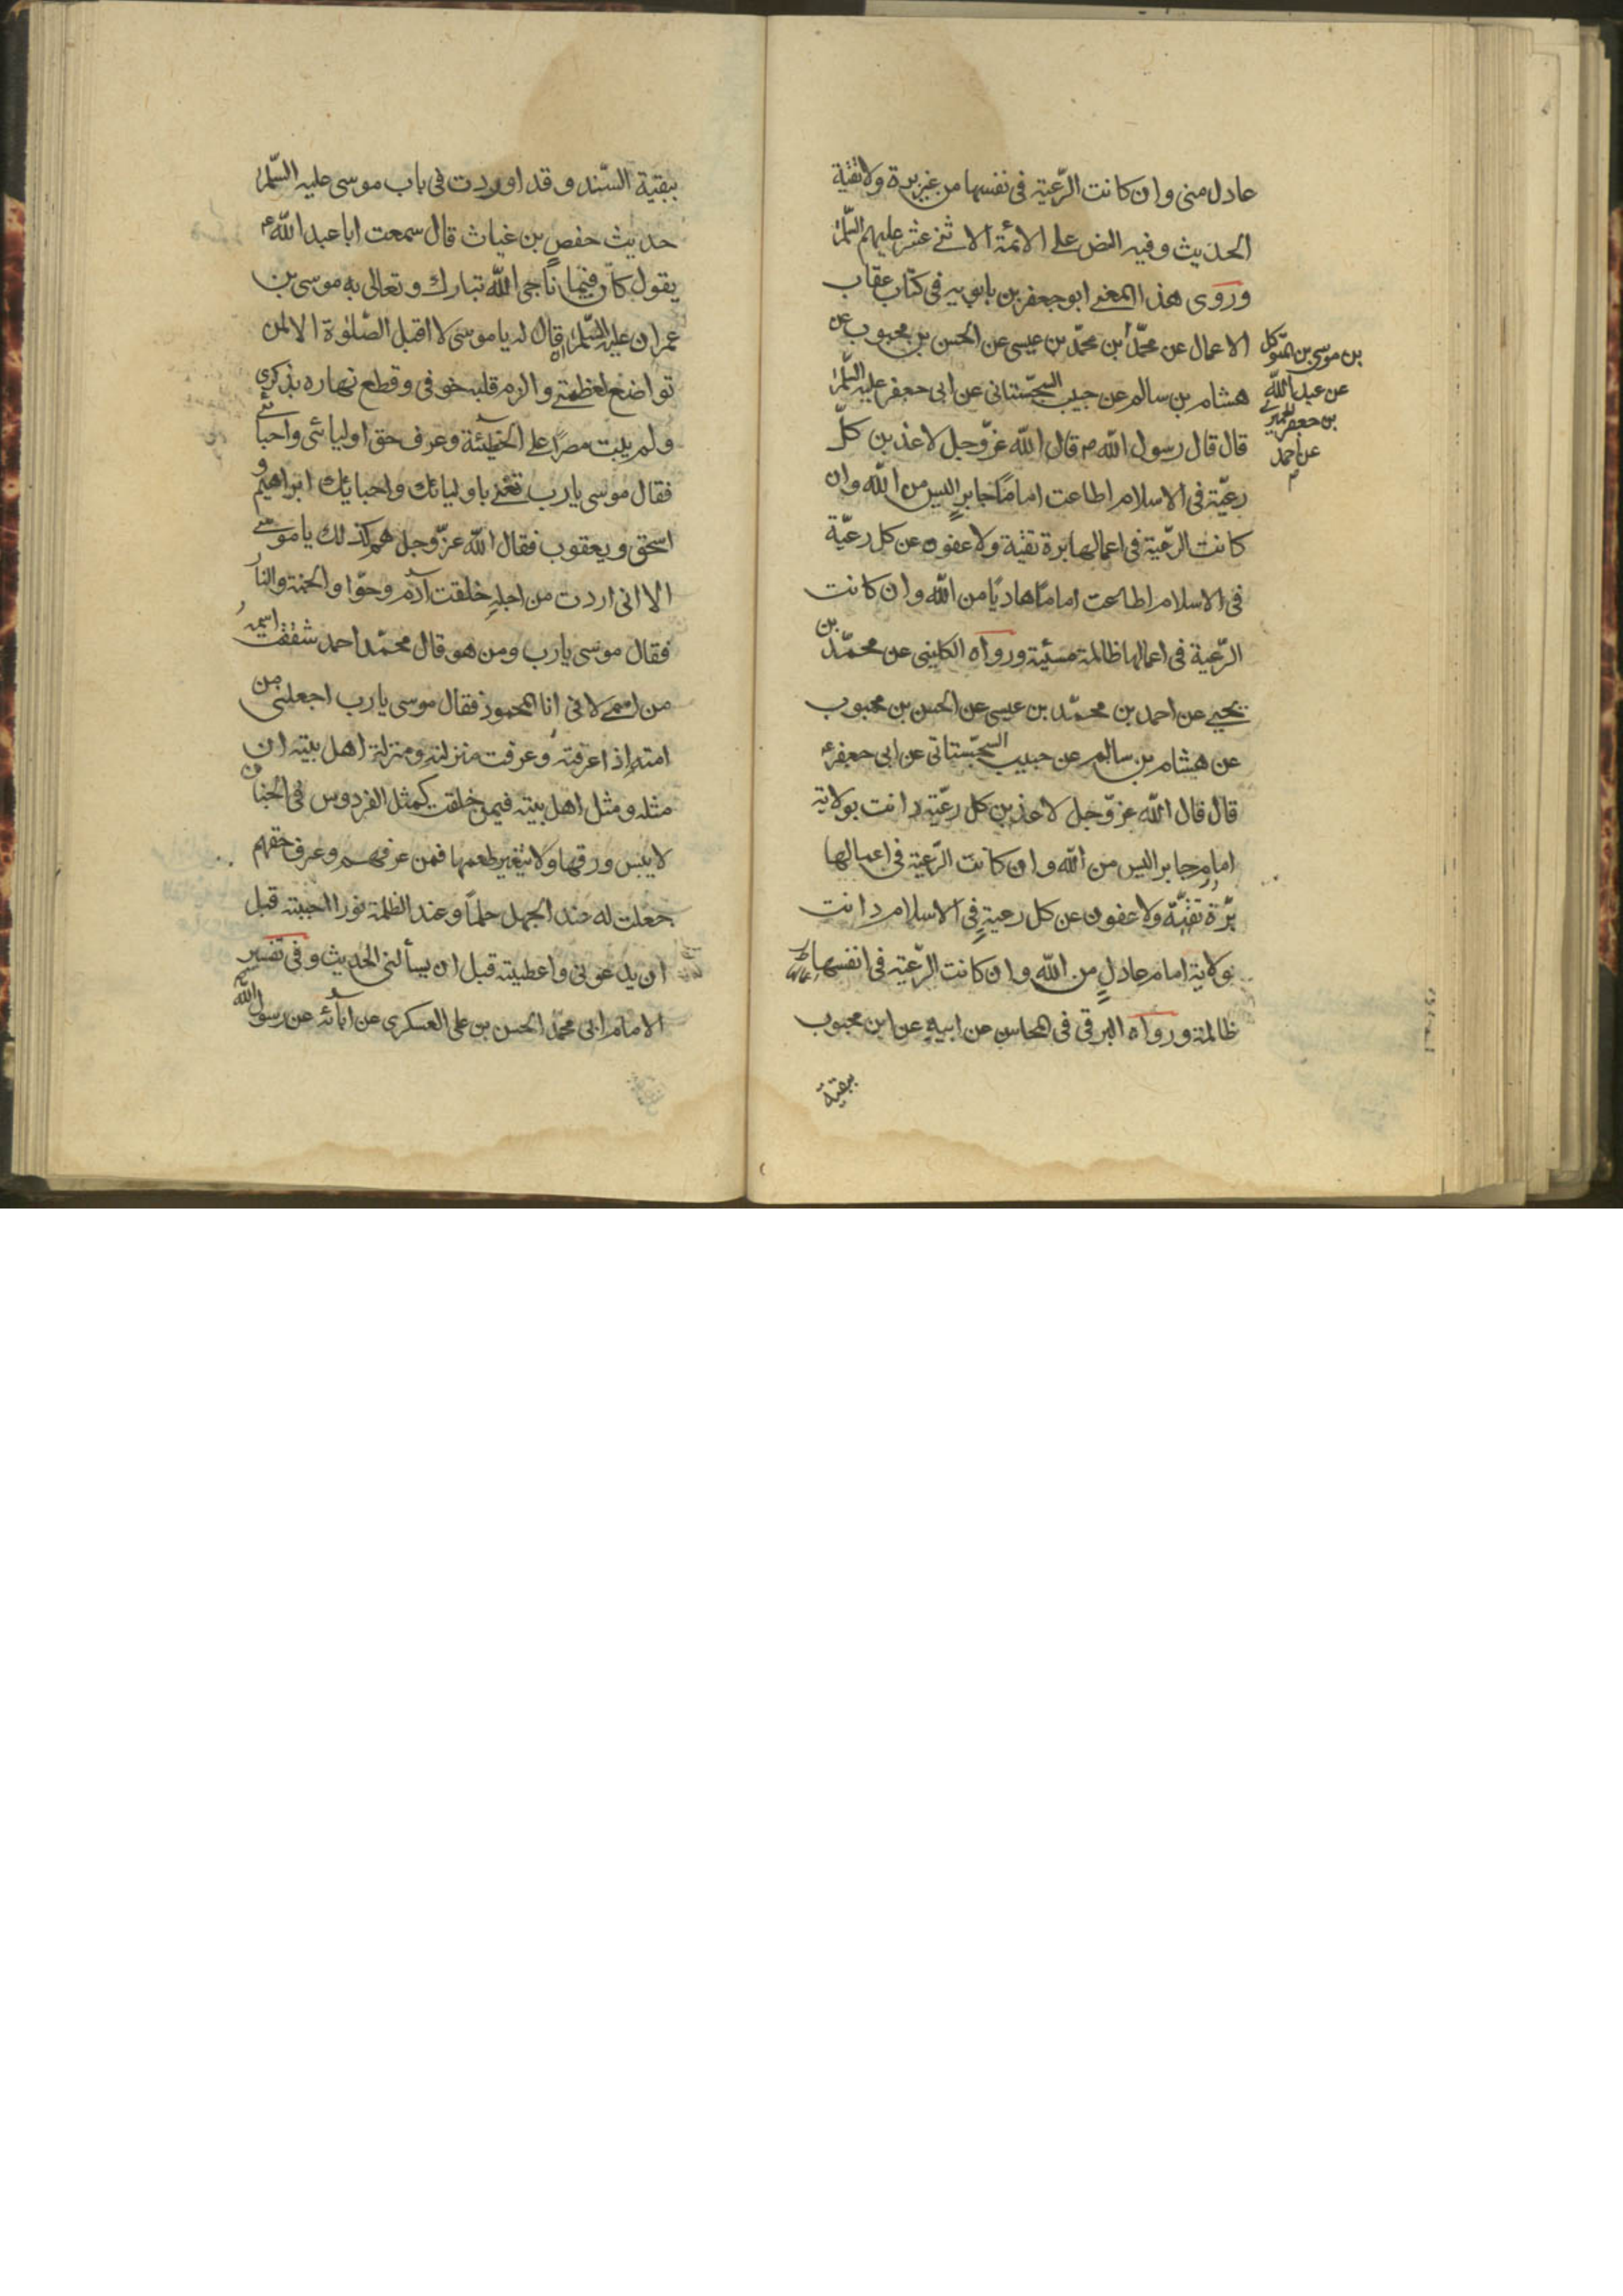 عادل منى وان كانت الرّعية فى نفسها من غير برة ولا تقية
الحديث وفيه النص على الائمة الاثنى عشر عليهم السّلم
وروى هذا المعنى ابو جعفر بن بابويه فى كتاب عقاب
الاعمال عن محمّد بن محمّد بن عيسى عن الحسن بن محبوب عن
بن موسى بن المتوكل
عن عبد الله
بن جعفر الحميرى
عن احمد
هشام بن سالم عن حبيب السجستانى عن ابى جعفر عليه السّلم
قال قال رسول الله ص قال الله عزّ وجل لاعذبن كلّ
رعيّة فى الاسلام اطاعت اماما جابرا ليس من الله وان
كانت الرعّية فى اعمالها برة تقية ولاعفون عن كل رعيّة
فى الاسلام اطاعت اماما هاديا من الله وان كانت
الرّعية فى اعمالها ظالمة مسيئة ورواه الكلينى عن محمّد بن
يحيى عن احمد بن محمّد بن عيسى عن الحسن بن محبوب
عن هشام بن سالم عن حبيب السجستانى عن ابى جعفر ع
قال قال الله عز وّجل لاعذبن كل رعّية دانت بولاية
امام جابر ليس من الله وان كانت الرّعية فى اعمالها
برّة تقيّة ولاعفون عن كل رعية فى الاسلام دانت
بولاية امام عادل من الله وان كانت الرّعية فى انفسها
ظالمة ورواه البرقى فى المحاسن عن ابيه عن ابن محبوب
ببقية
ببقية السّند وقد اوردت فى باب موسى عليه السّلم
حديث حفص بن غياث قال سمعت ابا عبد الله ع
يقول كان فيما ناجى الله تبارك وتعالى به موسى بن
عمران عليه السّلم ان قال له يا موسى لا اقبل الصّلوة الا لمن
تواضع لعظمتى والزم قلبه خوفى وقطع نهاره بذكرى
ولم يبت مصرا على الخطيئة وعرف حق اوليائى واحبائى
فقال موسى يا رب تعنى باوليائك واحبايك ابراهيم و
اسحق ويعقوب فقال الله عزّ وجل هم كذلك يا موسى
الا انى اردت من اجله خلقت آدم وحوّا والجنة والنار
فقال موسى يا رب ومن هو قال محمّد احمد شققت اسمه
من اسمى لانى انا المحمود فقال موسى يا رب اجعلنى من
امته اذا عرفته وعرفت منزلته ومنزلة اهل بيته ان
مثله ومثل اهل بيته فيمن خلقت كمثل الفردوس فى الجنان
لا ييبس ورقها ولا يتغير طعمها فمن عرفهم وعرف حقهم
جعلت له عند الجهل حلما وعند الظلمة نورا اجبته قبل
ان يدعونى واعطيته قبل ان يسألنى الحديث وفى تفسير
الامام ابى محمّد الحسن بن على العسكرى عن آبائه عن رسول الله